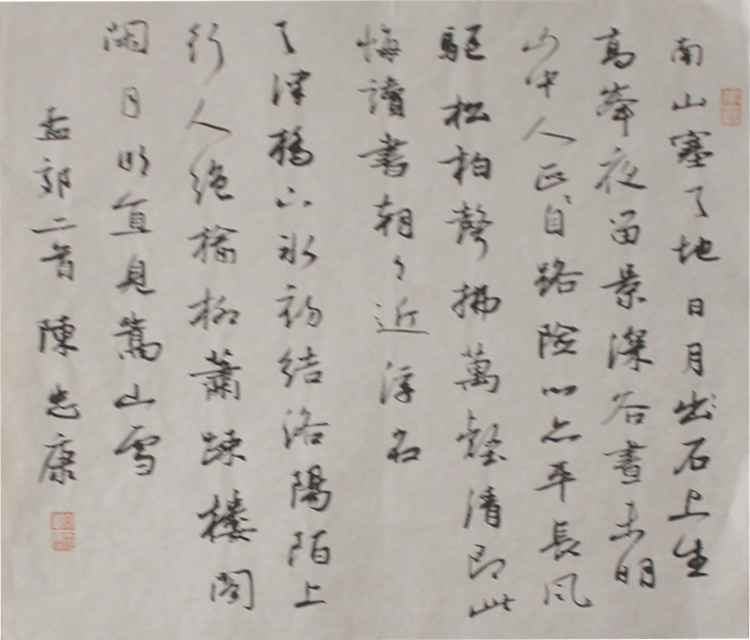 南山塞天地日月出石上生
高峯夜留景深谷晝未明
山中人正自路險心亦平長風
驅松柏聲拂萬壑清即此
悔讀書朝々近浮名
天津橋下冰初結洛陽陌上
行人絕榆柳蕭疎樓閣
閑月明直見嵩山雪
孟郊二首 陳忠康